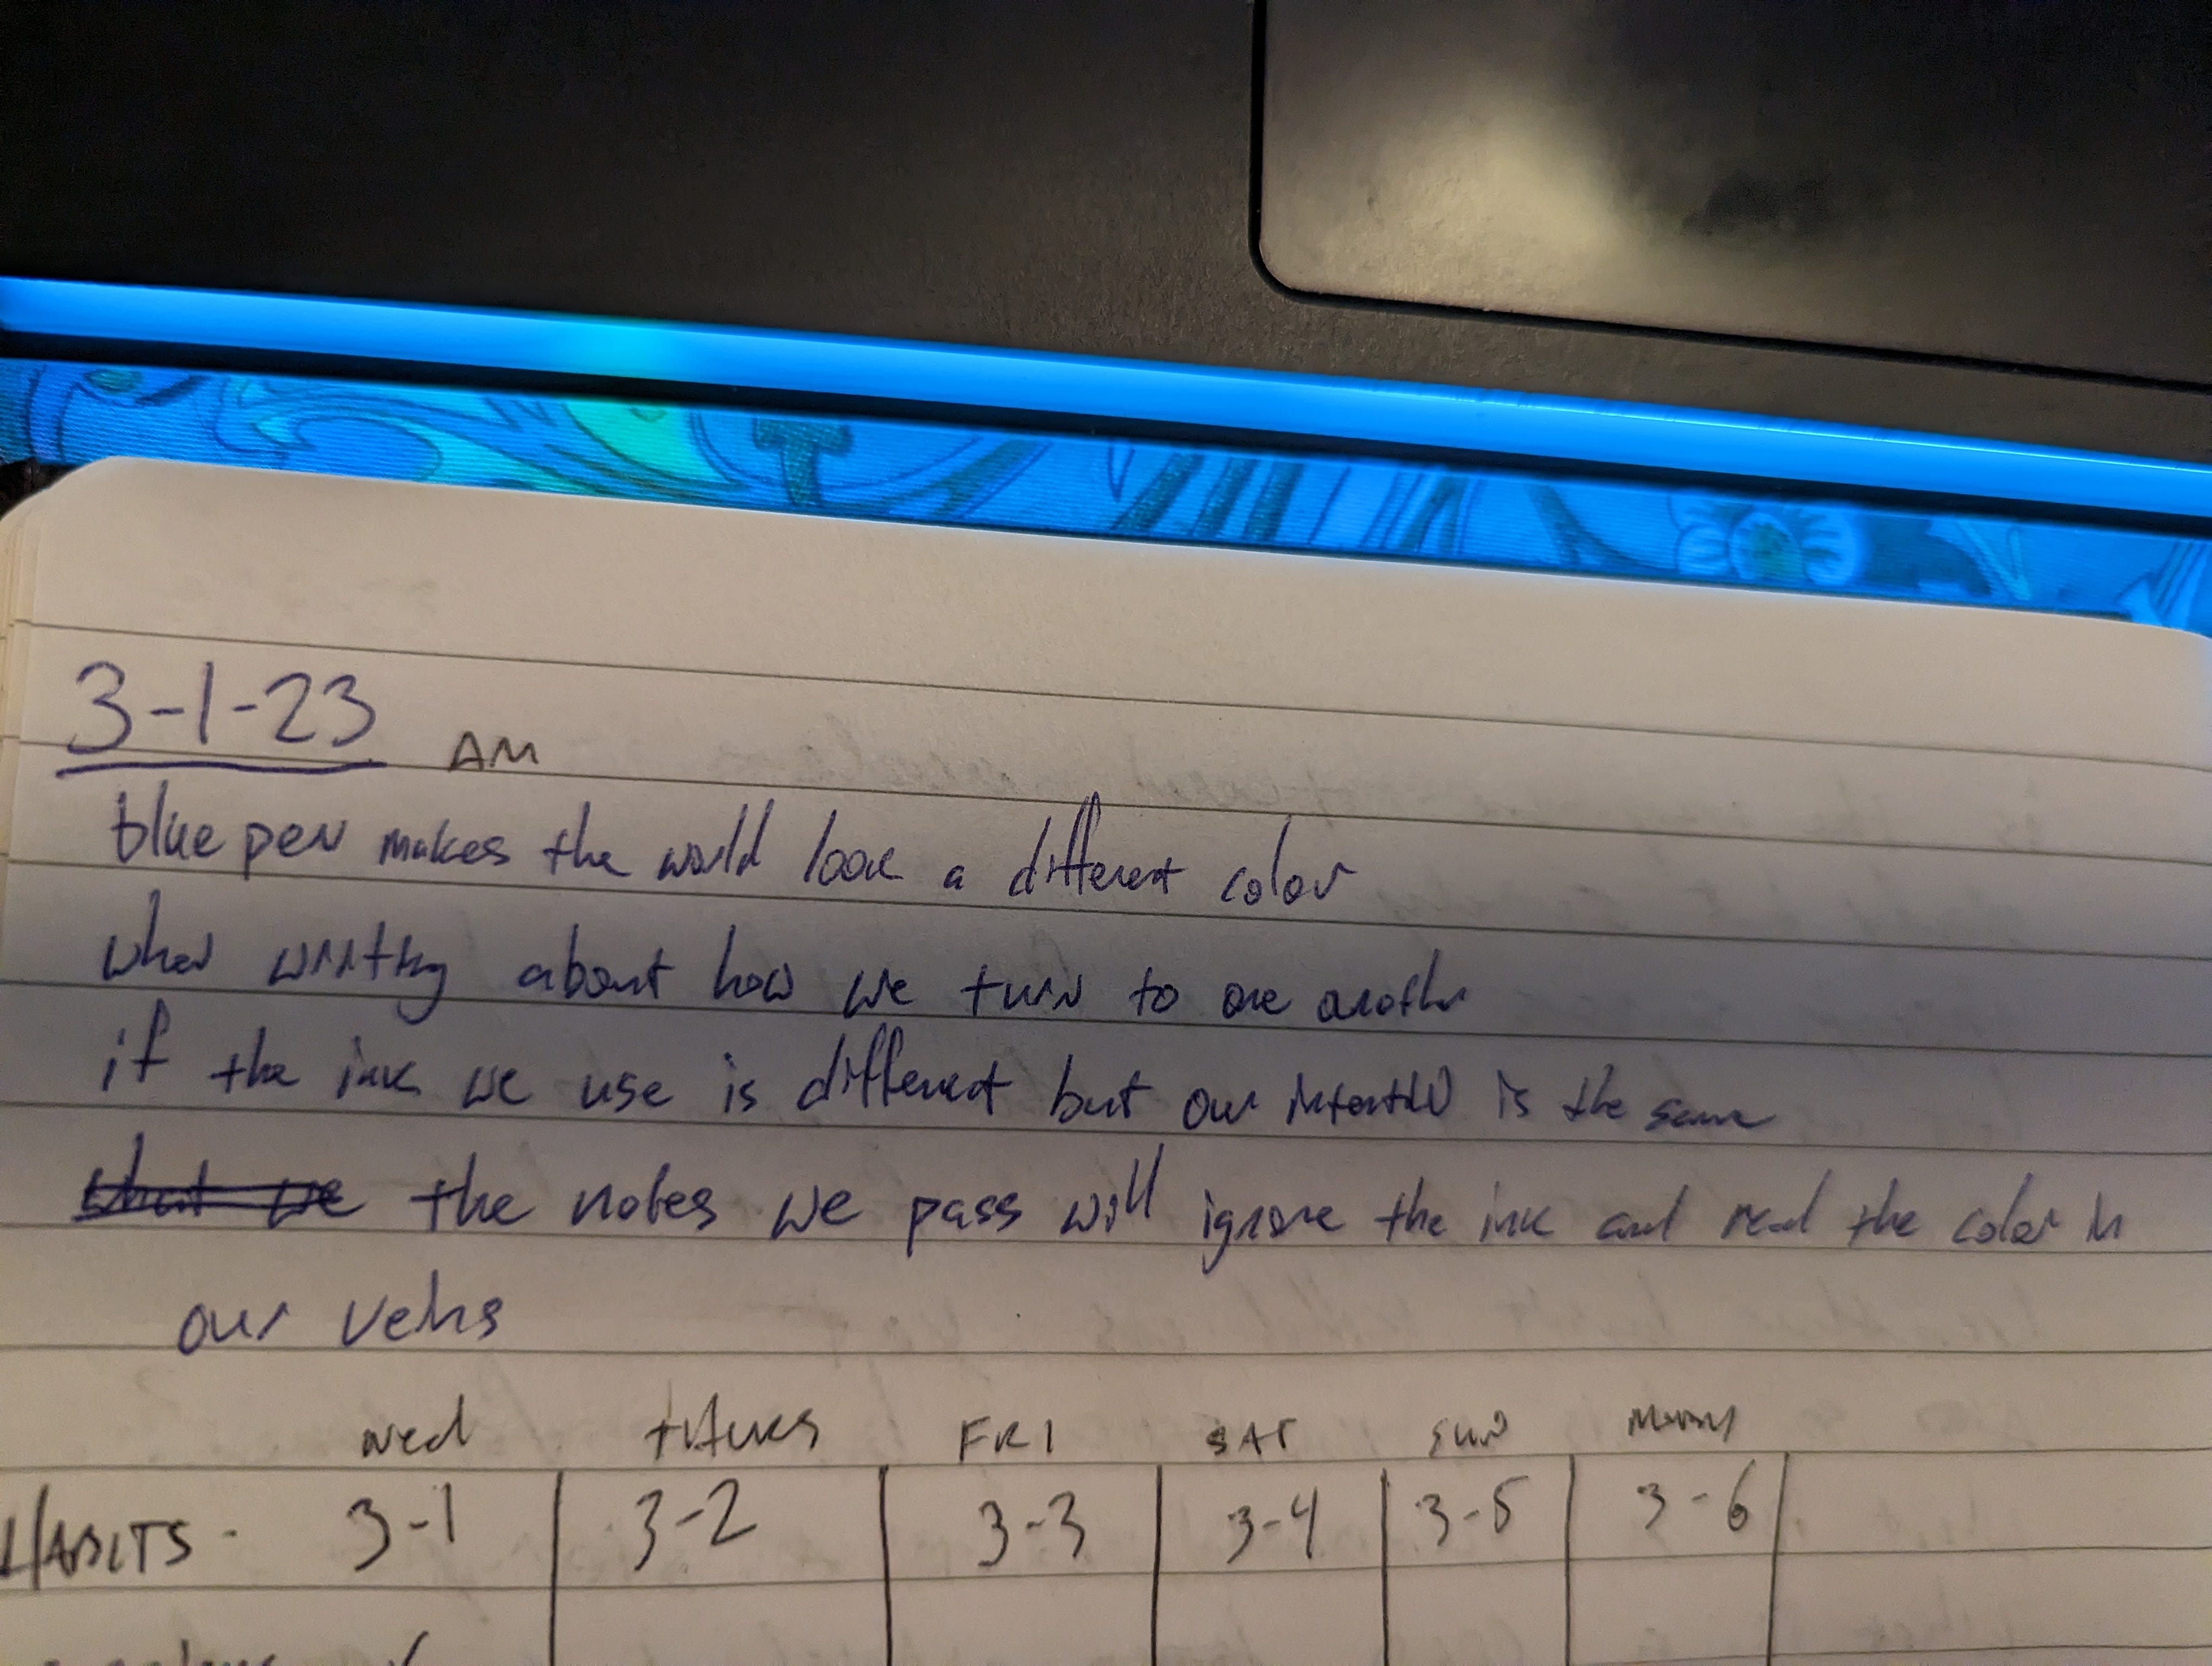 3-1-23 AM
blue pen makes the world look a different color
when writing about how we turn to one another
if the ink we use is different but our intention is the same
what we the notes we pass will ignore the ink and read the color in
our veins
wed thurs FRI SAT SUN MONDAY
HABITS - 3-1 3-2 3-3 3-4 3-5 3-6